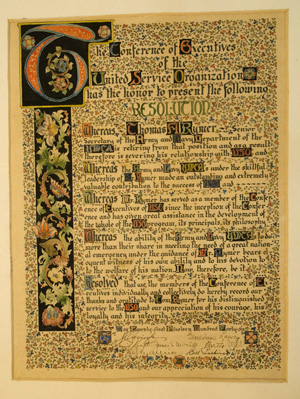 The Conference of Executives
of the
United Service Organizations
has the honor to present the following
RESOLUTION
Whereas, Thomas Rymer, Senior
Secretary of the Army and Navy Department of the
YMCA is retiring from that position and as a result
therefore is severing his relationship with USO and
Whereas the Army and Navy YMCA under the skillful
leadership of Mr Rymer made an outstanding and extremely
valuable contribution to the success of USO and
Whereas Mr Rymer has served as a member of the Conference
of Executives of USO since the inception of the Conference
and has given great assistance in the development of
the whole of the USO program, its principals, its philosophy,
Whereas the ability of the Army and Navy YMCA to do
more than their share in meeting the need of a great nation
at emergency under the guidance of Mr Rymer bears
eloquent witness of his own ability and to his devotion
to the welfare of his nation. Now, therefore, be it
Resolved that we, the members of the Conference of
Executives individually and collectively do hereby record our
thanks and gratitude to Tom Rymer for his distinguished
service to the USO and our appreciation of his courage, his
loyalty and his integrity.
Nineteen Hundred Forty